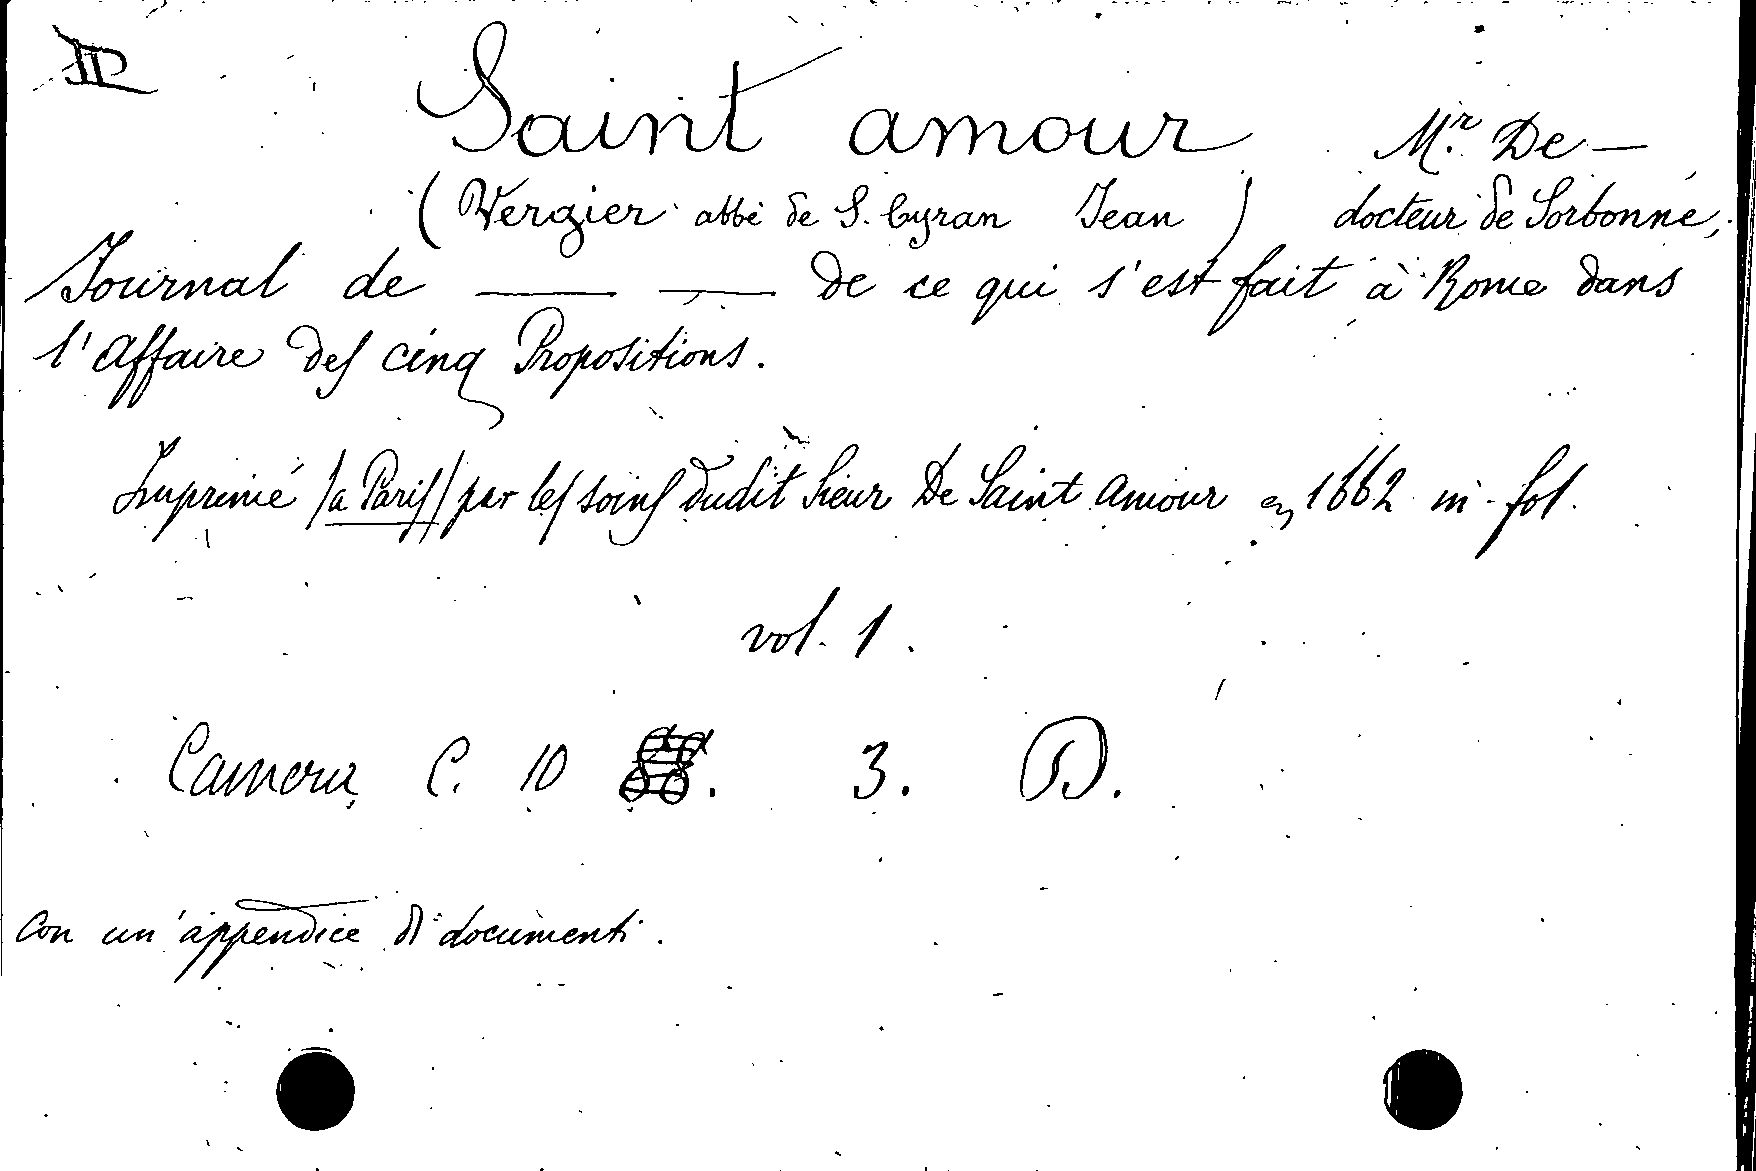 Saint amour Mr. De —
(Vergier abbé de S. Cyran Jean) docteur de Sorbonne,
Journal de —— —— de ce qui s'est fait à Rome dans
l'affaire des cinq Propositions.
Imprimé (a Paris) par les soins dudit Sieur De Saint Amour en 1662 in-fol.
vol. 1.
Camera C. 10 . 3. D.
Con un'appendice di documenti.